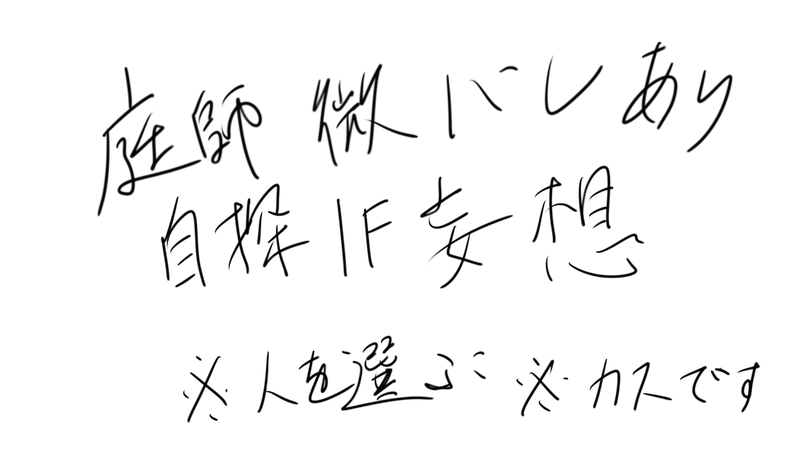 庭師 微バレあり
自探IF妄想
※人を選ぶ ※カスです